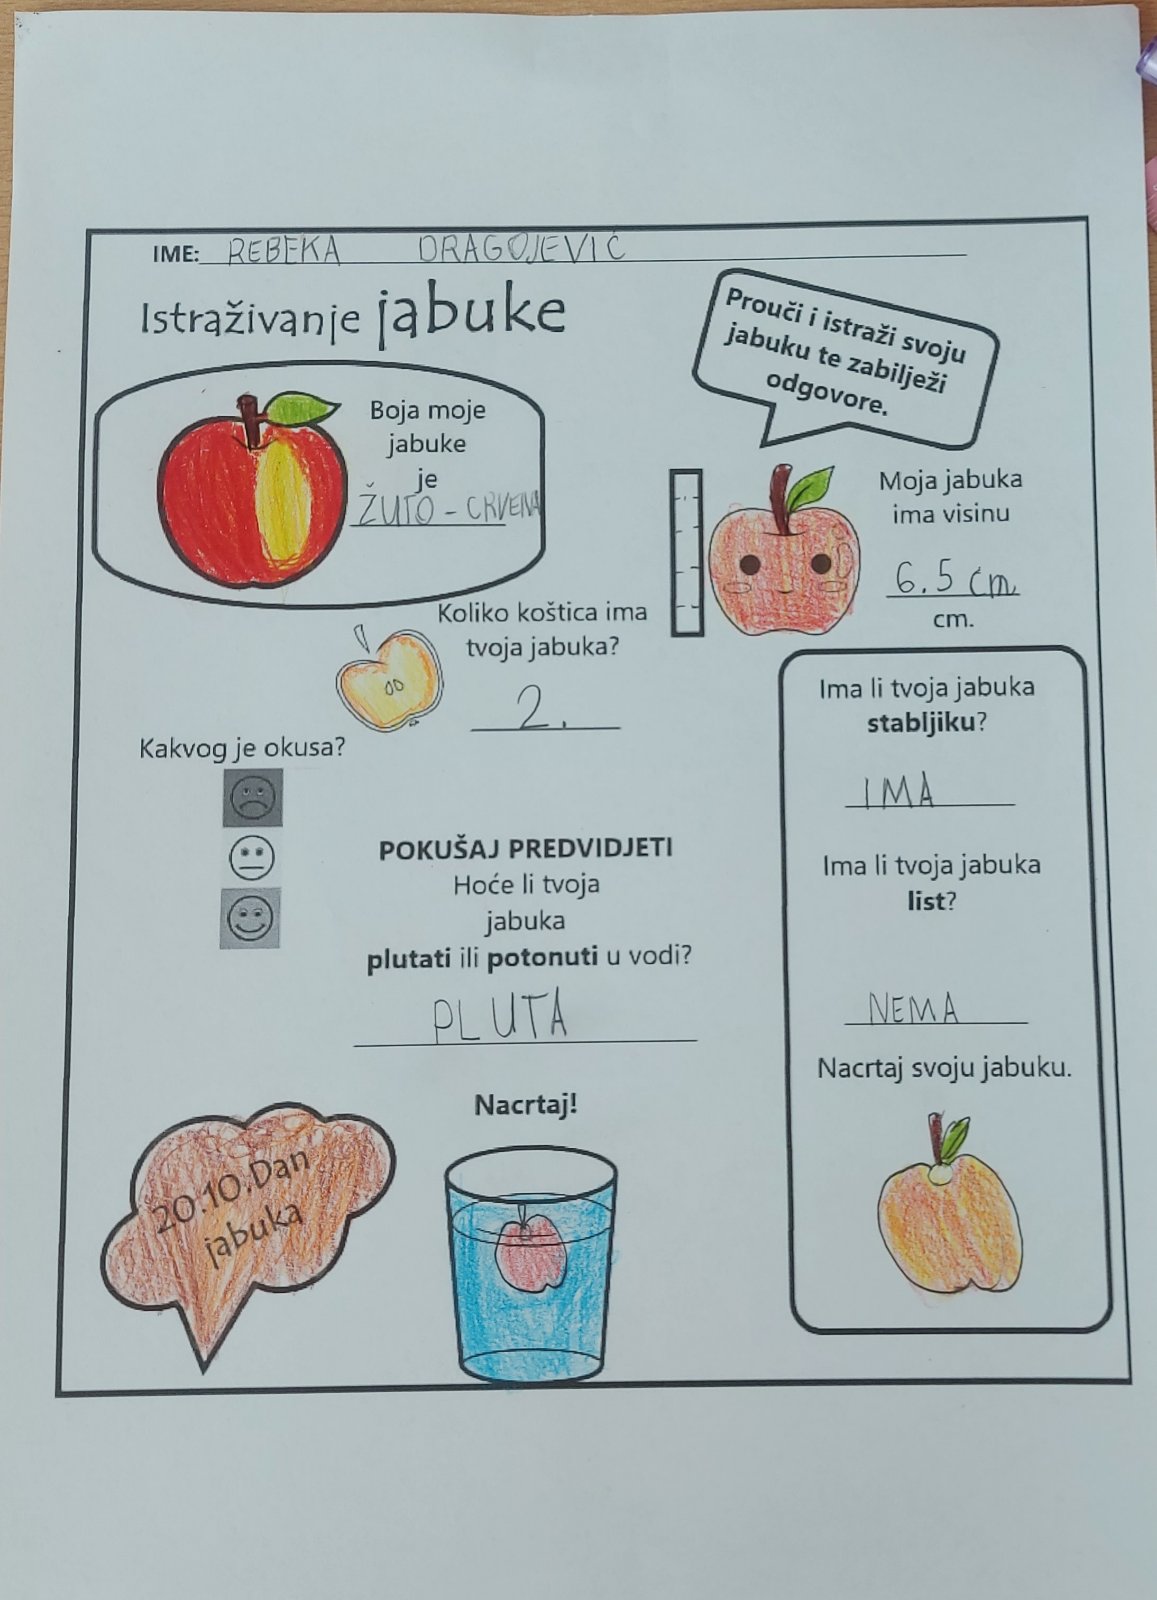 IME: REBEKA DRAGOJEVIĆ
Istraživanje jabuke
Prouči i istraži svoju
jabuku te zabilježi
odgovore.
Boja moje
jabuke
je
ŽUTO - CRVENA
Moja jabuka
ima visinu
6.5 cm
cm.
Koliko koštica ima
tvoja jabuka?
2.
Kakvog je okusa?
Ima li tvoja jabuka
stabljiku?
IMA
Ima li tvoja jabuka
list?
NEMA
Nacrtaj svoju jabuku.
POKUŠAJ PREDVIDJETI
Hoće li tvoja
jabuka
plutati ili potonuti u vodi?
PLUTA
Nacrtaj!
20.10.Dan
jabuka